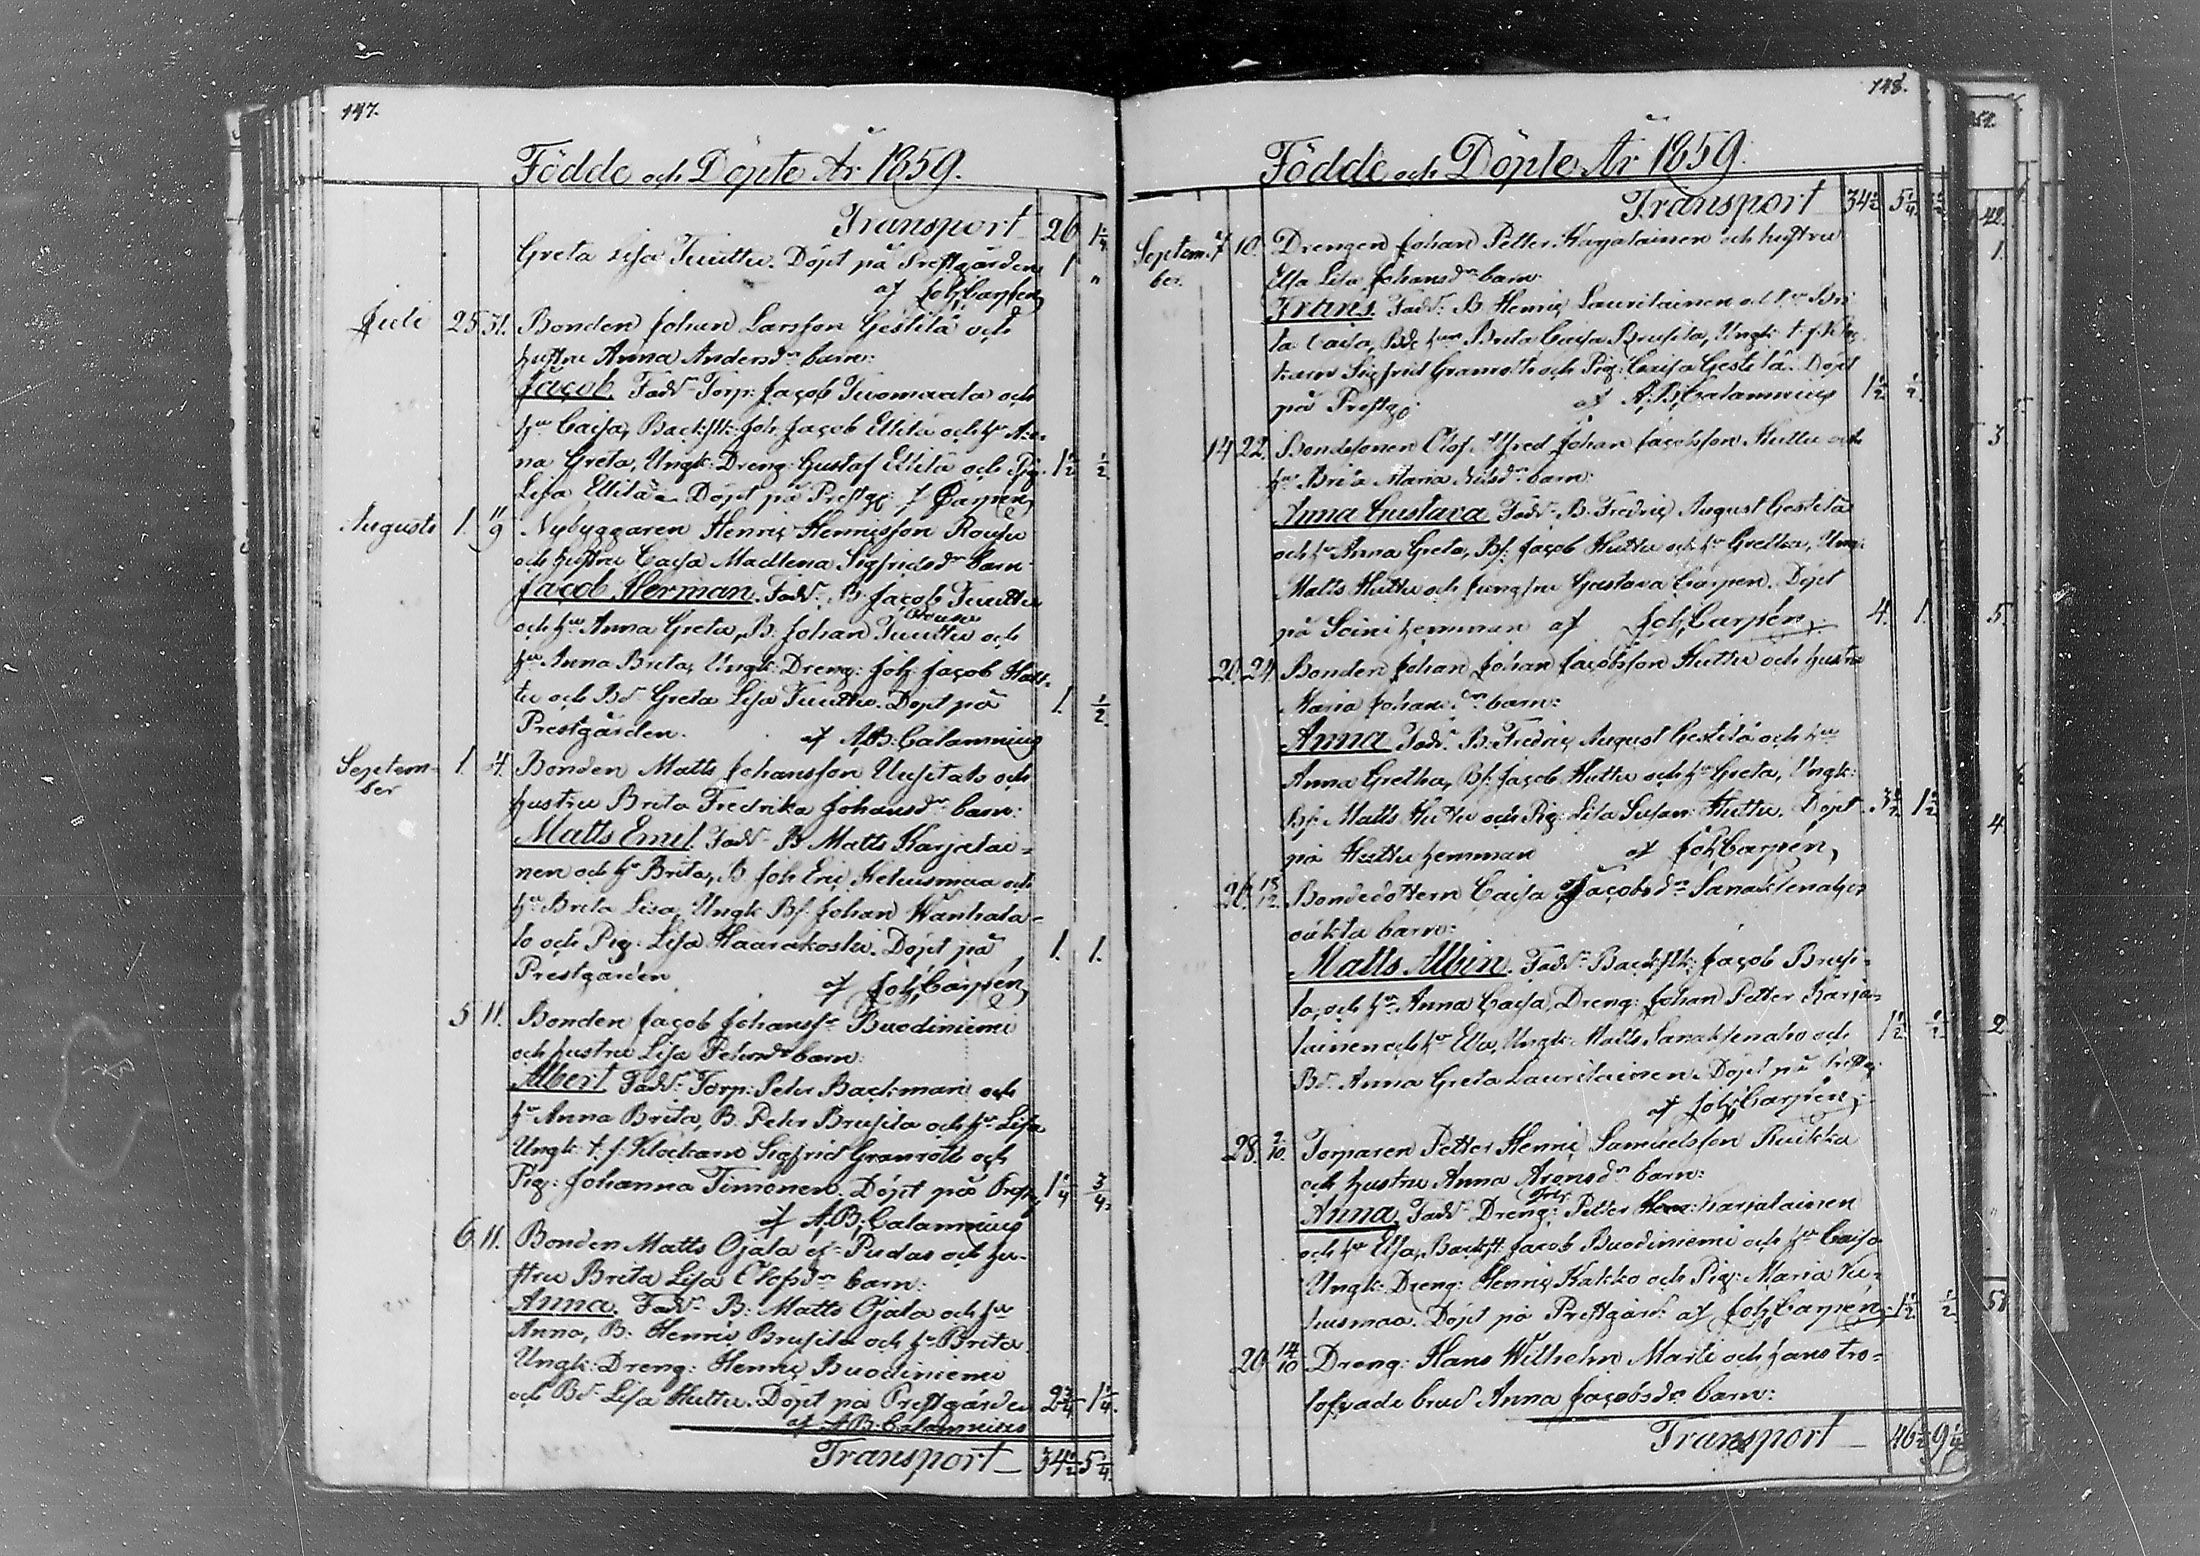 147.
Födde och Döpte År 1859.
Transport 26 1 1/4
Greta Lisa Tuuttu. Döpt på Prestgården 1 "
af Joh. Carpén,
Juli 25 31. Bonden Johan Larsson Gestilä och
hustru Anna Andersdr barn:
Jacob. Fadd. Torp: Jacob Tuomaala och
hu Caisa, Backstk: Joh. Jacob Ellilä och hu An-
na Greta, Ungk: Dreng: Gustaf Ellilä och Pig. 1 1/2 1/2
Lisa Ellilä. Döpt på Prestg: J Carpén
Augusti 1. 11/9 Nybyggaren Henric Henricsson Rousu
och hustru Caisa Madlena Sigfridsdr barn
Jacob Herman. Fadd. B. Jacob Tuuttu
och hu Anna Greta, B. Johan Tuuttu och
hu Anna Brita, Ungk: Dreng: Joh. Jacob
tu och Bd. Greta Lisa Tuuttu. Döpt på 1. 1/2.
Prestgården. af A.B. Calamnius
Septem- 1. 4. Bonden Matts Johansson Uusitalo och
ber
hustru Brita Fredrika Johansdr barn:
Matts Emil. Fadd. B Matts Karjalai-
nen och hu Brita, B Joh Eric Kehusmaa och
hu Brita Lisa, Ungk Bs. Johan Wanhata-
lo och Pig: Lisa Haarakoski. Döpt på 1. 1.
Prestgården af Joh. Carpén,
5 11. Bonden Jacob Johanss. Buodiniemi
och hustru Lisa Petersdr barn:
Albert Fadd. Torp: Petr Backman och
hu Anna Brita, B. Petr Brusila och hu Lisa
Ungk: t. f. Klockarn Sigfrid Granroth och
Pig: Johanna Timonen. Döpt på Prestg 1 1/4 3/4.
af A.B. Calamnius
6. 11. Bonden Matts Ojala el. Pudas och hu-
stru Brita Lisa Olofsdr barn:
Anna. Fadd. B: Matts Ojala och hu
Anna, B. Henric Brusila och hu Brita
Ungk: Dreng: Henric Buodiniemi
och Bd. Lisa Huttu. Döpt på Prestgården 2 3/4 1 1/4.
af A B. Calamnius
Transport 34 1/2 5 1/4.
148.
Födde och Döpte År 1859.
Transport 34 1/2 5 1/4
Septem- 7 10. Drengen Johan Petter Karjalainen och hustru
ber.
Elsa Lisa Johansdr barn:
Frans. Fadd: B. Henric Lauritainen och hu Bri
ta Caisa, Brita Caisa Brusila, Ungk: t. f. Kloc
karn Sigfrid Granroth och Pig: Caisa Gestilä. Döpt
på Prestg: af A. B. Calamnius 1 1/2 1/2
14 22. Bondesonen Olof Alfred Johan Jacobsson Huttu och
hu Brita Maria Nilsdr barn:
Anna Gustava Fadd. B. Fredric August Gestilä
och hu Anna Greta, Bs: Jacob Huttu och hu Gretha, Ung:
Matts Huttu och Jungfru Gustava Carpén. Döpt
på Soini hemman af Joh. Carpén, 4. 1.
20. 24. Bonden Johan Johan Jacobsson Huttu och hustru
Maria Johansdr barn:
Anna Fadd. B. Fredric August Gestilä och hu
Anna Gretha, Bs: Jacob Huttu och hu Greta, Ungk:
Bs: Matts Huttu och Pig: Lisa Susan: Huttu. Döpt 3 1/2 1 1/2
på Huttu hemman af Joh. Carpén,
26. 18/12. Bondedottern Caisa Jacobsdr Sanaksenaho
oäkta barn:
Matts Albin. Fadd. Backstk: Jacob Brusi-
la, och hu Anna Caisa, Dreng: Johan Petter Karja-
lainen och hu Elsa, Ungk: Matts Sanaksenaho och 1 1/2 1/2
Bd. Anna Greta Lauritainen. Döpt på Prestg:
af Joh. Carpén,
28. 2/10. Torparen Petter Henric Samuelsson Kuikka
och hustru Anna Aronsdr barn:
Anna. Fadd. Dreng: Petter Karjalainen
och hu Elsa, Backst. Jacob Buodiniemi och hu Caisa
Ungk: Dreng: Henric Kakko och Pig: Maria Ke-
husmaa. Döpt på Prestgård. af Joh. Carpén, 1 1/2 1/2
20 14/10 Dreng: Hans Wilhelm Marti och hans tro-
lofvade brud Anna Jacobsdr barn:
Transport 46 1/2 9 1/4